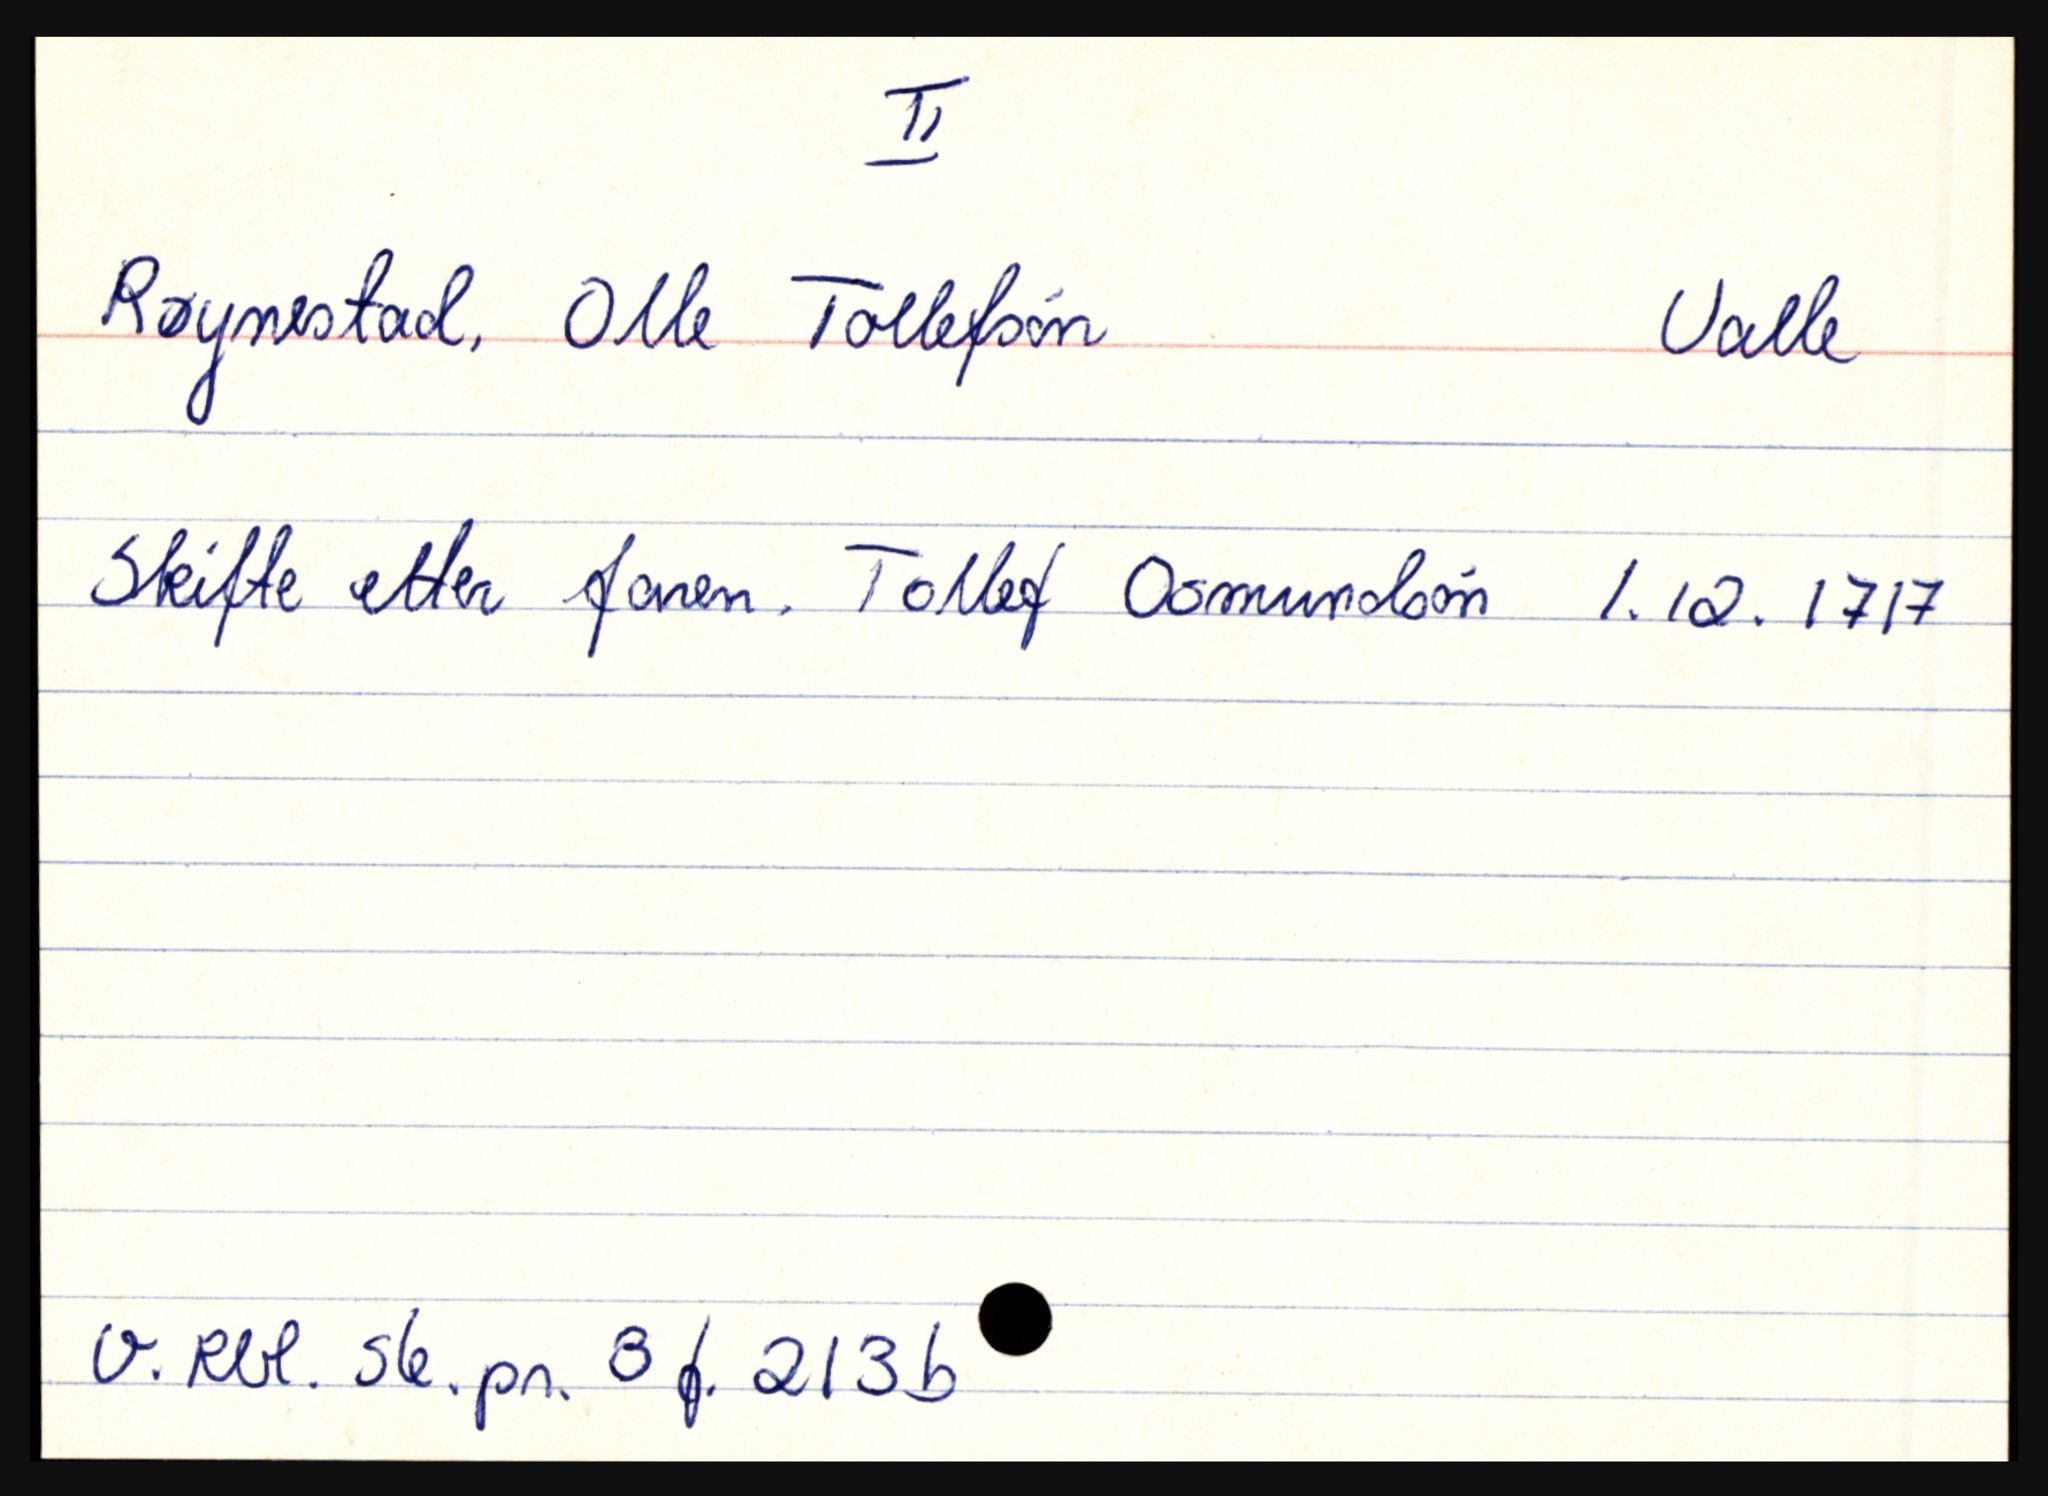 II
Røynestad, Olle Tollefsøn Valle
Skifte etter faren. Tollef Osmundsøn 1.12.1717
V. Rbl. sk. pr. 3 f. 213b